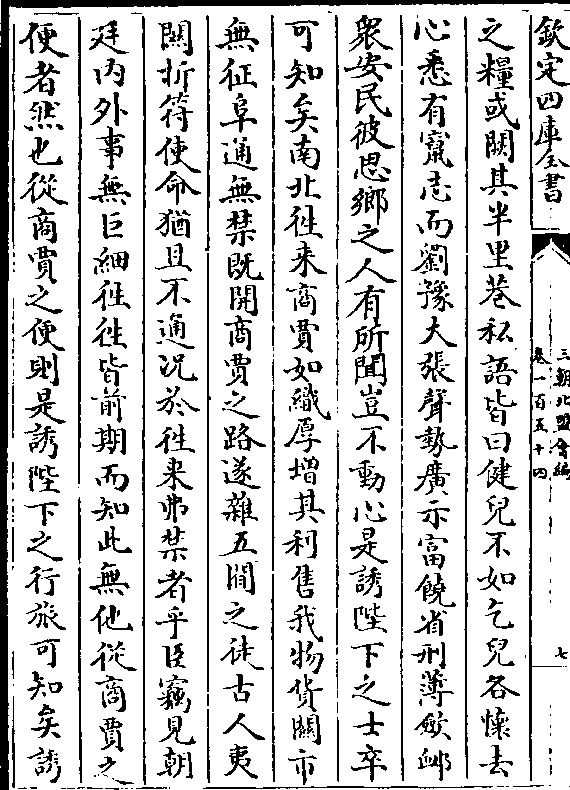 欽定四庫全書
三朝北盟會編
卷一百五十四
七
之糧或闕其半里巷私語皆曰健兒不如乞兒各懷去
心悉有竄志而劉豫大張聲勢廣示富饒省刑薄斂䘏
衆安民彼思鄉之人有所聞豈不動心是誘陛下之士卒
可知矣南北徃来商賈如織厚増其利售我物貨關市
無征阜通無禁既開商賈之路遂雜五間之徒古人夷
關折符使命猶且不通况於徃来弗禁者乎臣竊見朝
廷内外事無巨細徃徃皆前期而知此無他從商賈之
便者然也從商賈之便則是誘陛下之行旅可知矣誘